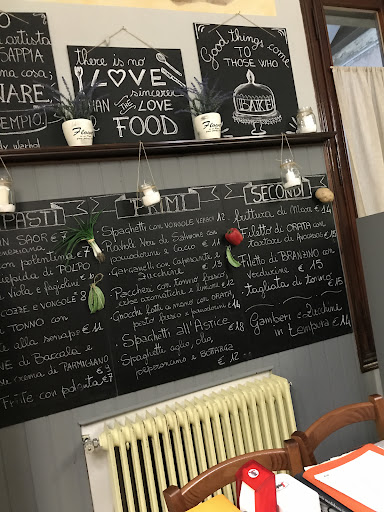 artista
SAPPIA
una cosa;
there is no
LOVE
sincerer
THAN THE LOVE
FOOD
Good things come
TO
THOSE WHO
BAKE
PASTI
IN SAOR €7
con polentina €7
tiepida di POLPO
COZZE e VONGOLE 8
TONNO con
di Baccalà e
crema di PARMIGIANO
€9
con polenta €7
PRIMI
Spaghetti con VONGOLE VERACI 12
Ravioli Neri di Salmone con
pomodorini e Cacio €14
Garganelli con Capesante e
Zucchine €15
Paccheri con tonno fresco
erbe aromatiche e limone €12
Gnocchi fatti a mano con ORATA,
pesto fresco e pomodorini €14
Spaghetti all'Astice €18
Spaghetti aglio, olio,
peperoncino e BOTTARGA
€12
SECONDI
frittura di Mare €14
Filetto di ORATA con
€15
Filetto di BRANZINO con
verdurine €15
tagliata di tonno
€15
Gamberi e Zucchine
in tempura €14